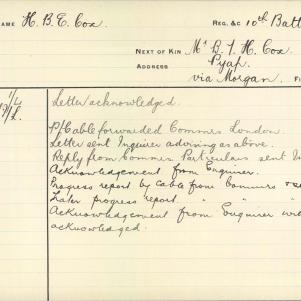 NAME H. B. E. Cox REG. &c 10th Batt
NEXT OF KIN Mr B. T. H. Cox
ADDRESS Pyap
via Morgan.
Letter acknowledged.
P/Cable forwarded Commrs London.
Letter sent Inquirer advising as above.
Reply from Commrs Particulars sent
Acknowledgement from Enquirer.
Progress report by cable from Commrs
Later progress report " "
Acknowledgement from Enquirer
acknowledged.